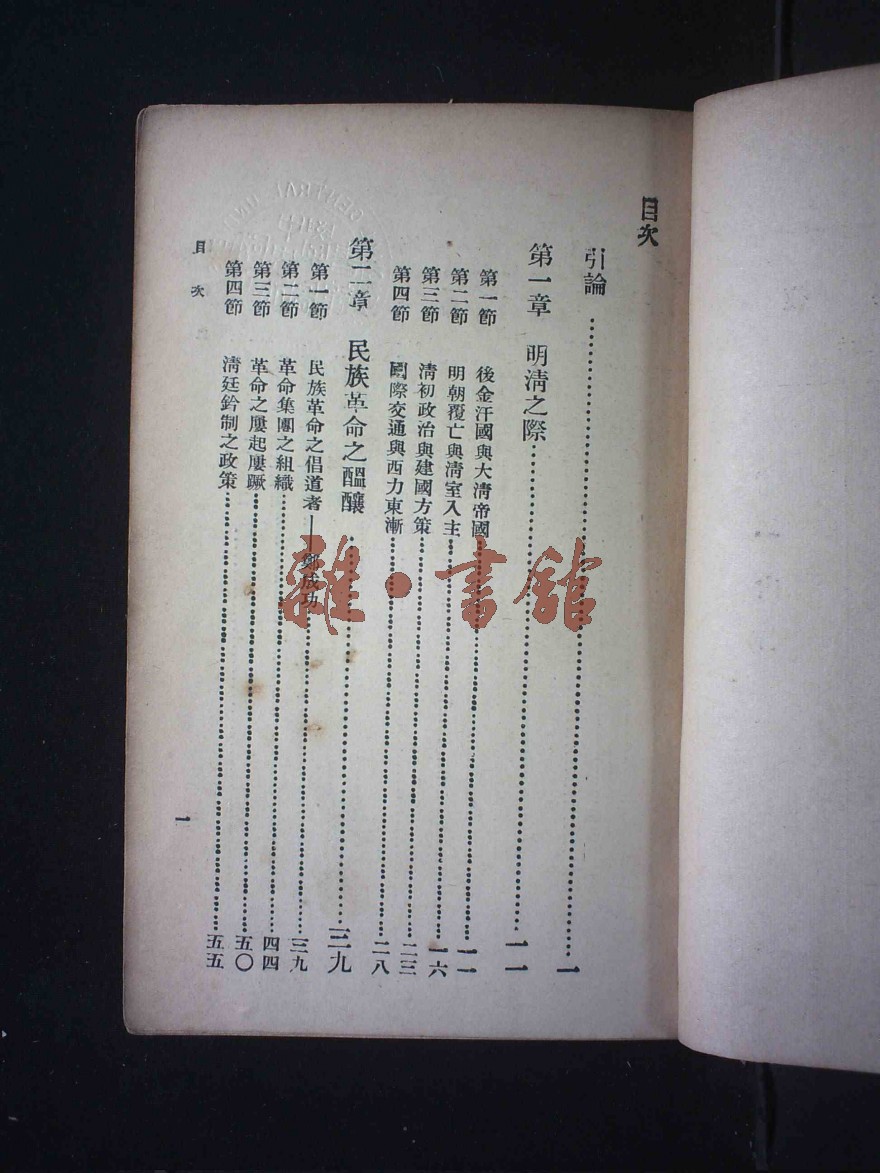 目次
引論……一
第一章 明清之際……一一
第一節 後金汗國與大清帝國……一一
第二節 明朝覆亡與清室入主……一六
第三節 清初政治與建國方策……二三
第四節 國際交通與西力東漸……二八
第二章 民族革命之醞釀……三九
第一節 民族革命之倡道者——鄭成功……三九
第二節 革命集團之組織……四四
第三節 革命之屢起屢蹶……五〇
第四節 清廷鈐制之政策……五五
目次
一
雜·書館
CENTRAL UNI